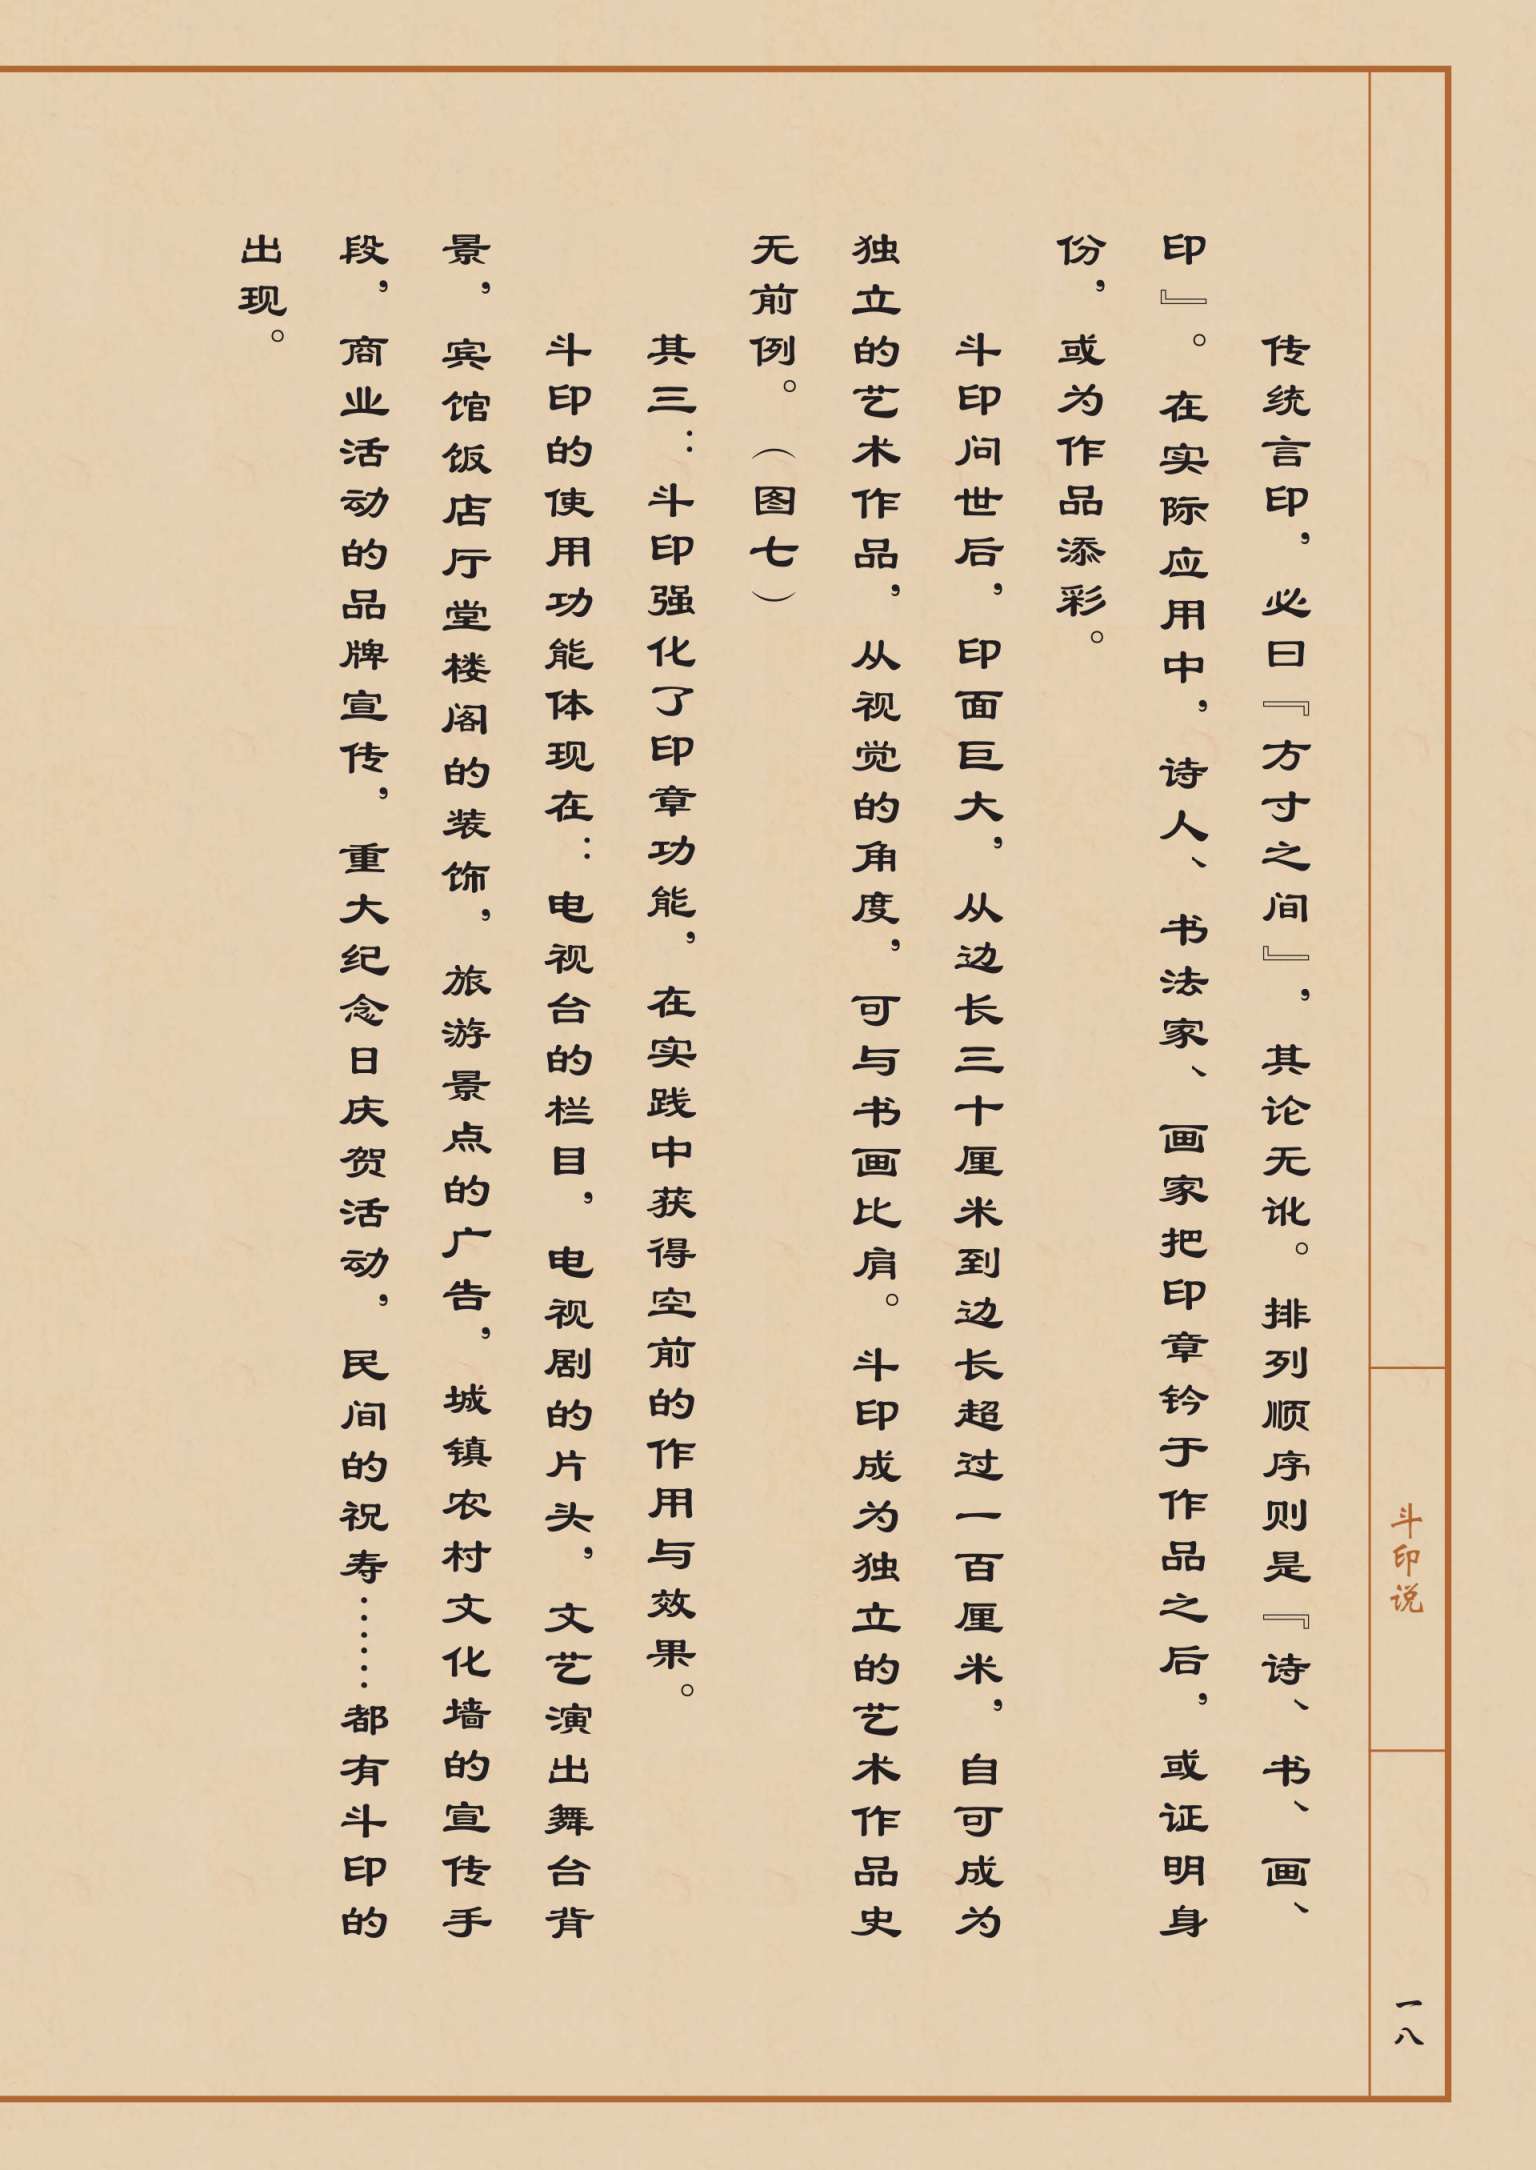 传统言印，必曰『方寸之间』，其论无讹。排列顺序则是『诗、书、画、
印』。在实际应用中，诗人、书法家、画家把印章钤于作品之后，或证明身
份，或为作品添彩。
斗印问世后，印面巨大，从边长三十厘米到边长超过一百厘米，自可成为
独立的艺术作品，从视觉的角度，可与书画比肩。斗印成为独立的艺术作品史
无前例。（图七）
其三：斗印强化了印章功能，在实践中获得空前的作用与效果。
斗印的使用功能体现在：电视台的栏目，电视剧的片头，文艺演出舞台背
景，宾馆饭店厅堂楼阁的装饰，旅游景点的广告，城镇农村文化墙的宣传手
段，商业活动的品牌宣传，重大纪念日庆贺活动，民间的祝寿……都有斗印的
出现。
斗印说
一八